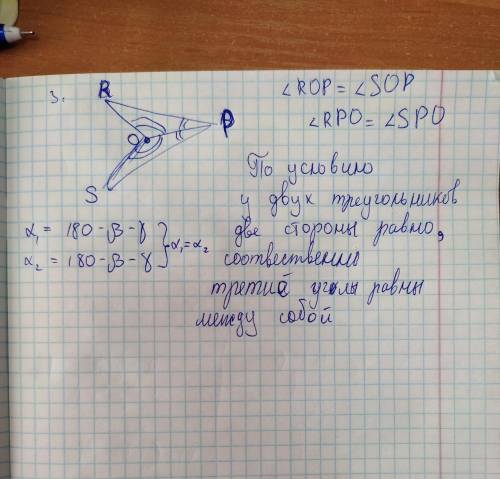 3.
R
O
P
S
∠ROP = ∠SOP
∠RPO = ∠SPO
По условию
у двух треугольников
две стороны равно,
соотвественно
третий углы равны
между собой
α₁ = 180-β-γ
α₂ = 180-β-γ } α₁=α₂